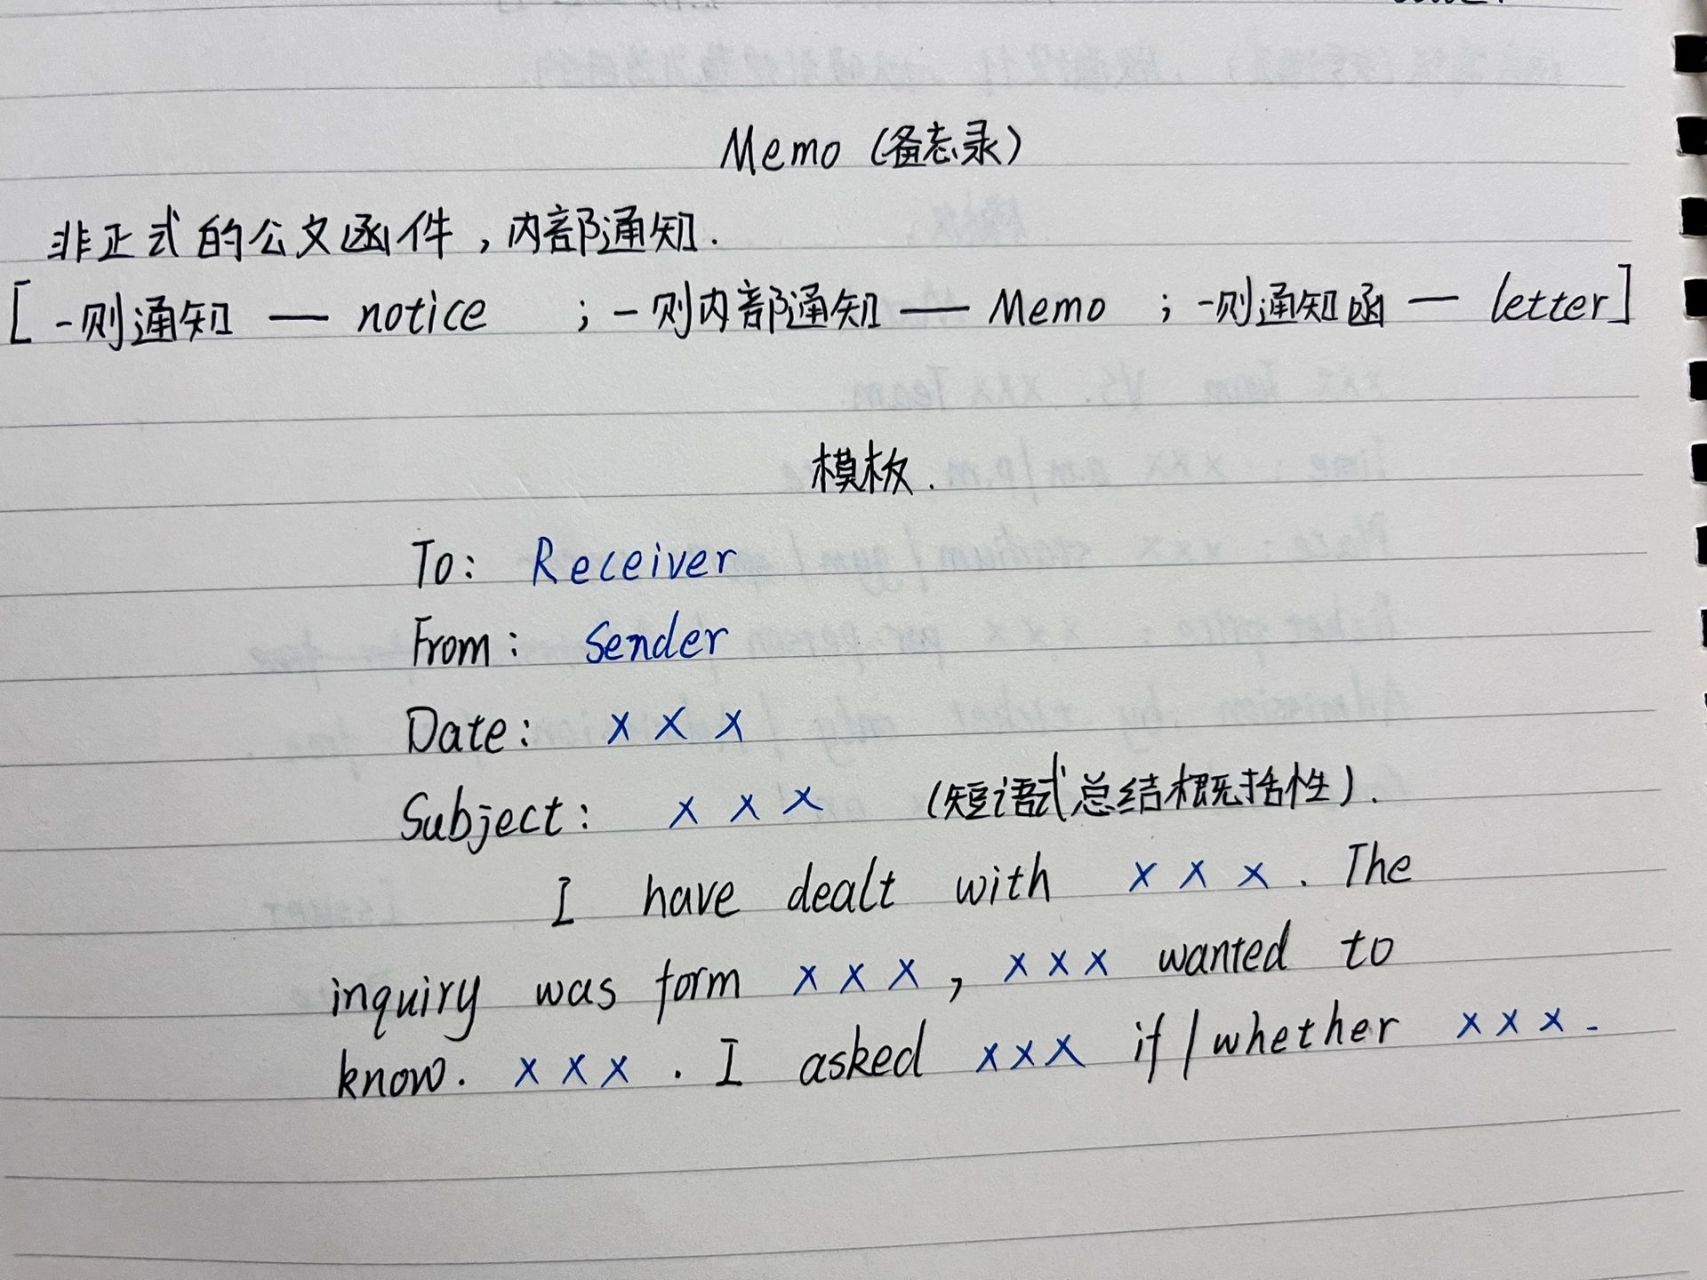 Memo (备忘录)
非正式的公文函件,内部通知.
[一则通知 — notice ; 一则内部通知 — Memo ; 一则通知函 — letter]
模板.
To: Receiver
From: Sender
Date: x x x
Subject: x x x (短语式总结概括性).
I have dealt with x x x. The
inquiry was form x x x, x x x wanted to
know. x x x . I asked x x x if / whether x x x.